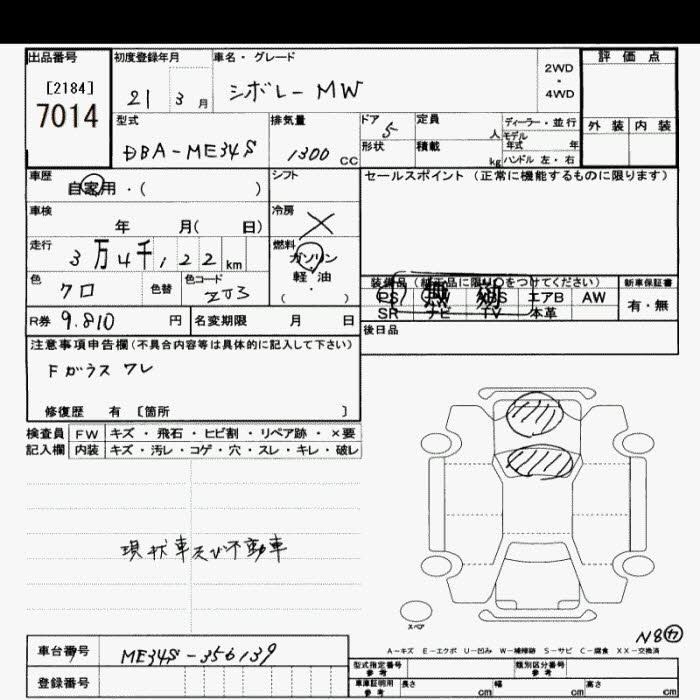 出品番号
[2184]
7014
初度登録年月
21 3月
車名・グレード
シボレーMW
2WD
・
4WD
評価点
外装 内装
型式
DBA-ME34S
排気量
1300 CC
ドア 5
形状
定員 人
積載 kg
ディーラー・並行
モデル年式 年
ハンドル 左・右
車歴
自家用・( )
シフト
セールスポイント(正常に機能するものに限ります)
車検
年 月( 日)
冷房
走行
3万4千,122km
燃料
ガソリン
軽・油
( )
色
クロ
色替
色コード
ZJ3
装備品(純正品に限り○をつけてください)
PS PW ABS エアB AW
SR ナビ TV 本革
新車保証書
有・無
R券 9.810 円
名変期限 月 日
後日品
注意事項申告欄(不具合内容等は具体的に記入して下さい)
Fガラス ワレ
修復歴 有 [箇所 ]
検査員
記入欄
FW キズ・飛石・ヒビ割・リペア跡・×要
内装 キズ・汚レ・コゲ・穴・スレ・キレ・破レ
現状車及び不動車
スペア
A-キズ E-エクボ U-凹み W-補修跡 S-サビ C-腐食 XX-交換済
車台番号
ME34S-356139
登録番号
型式指定番号
参考
類別区分番号
参考
車庫証明用
参考
長さ cm
幅 cm
高さ cm